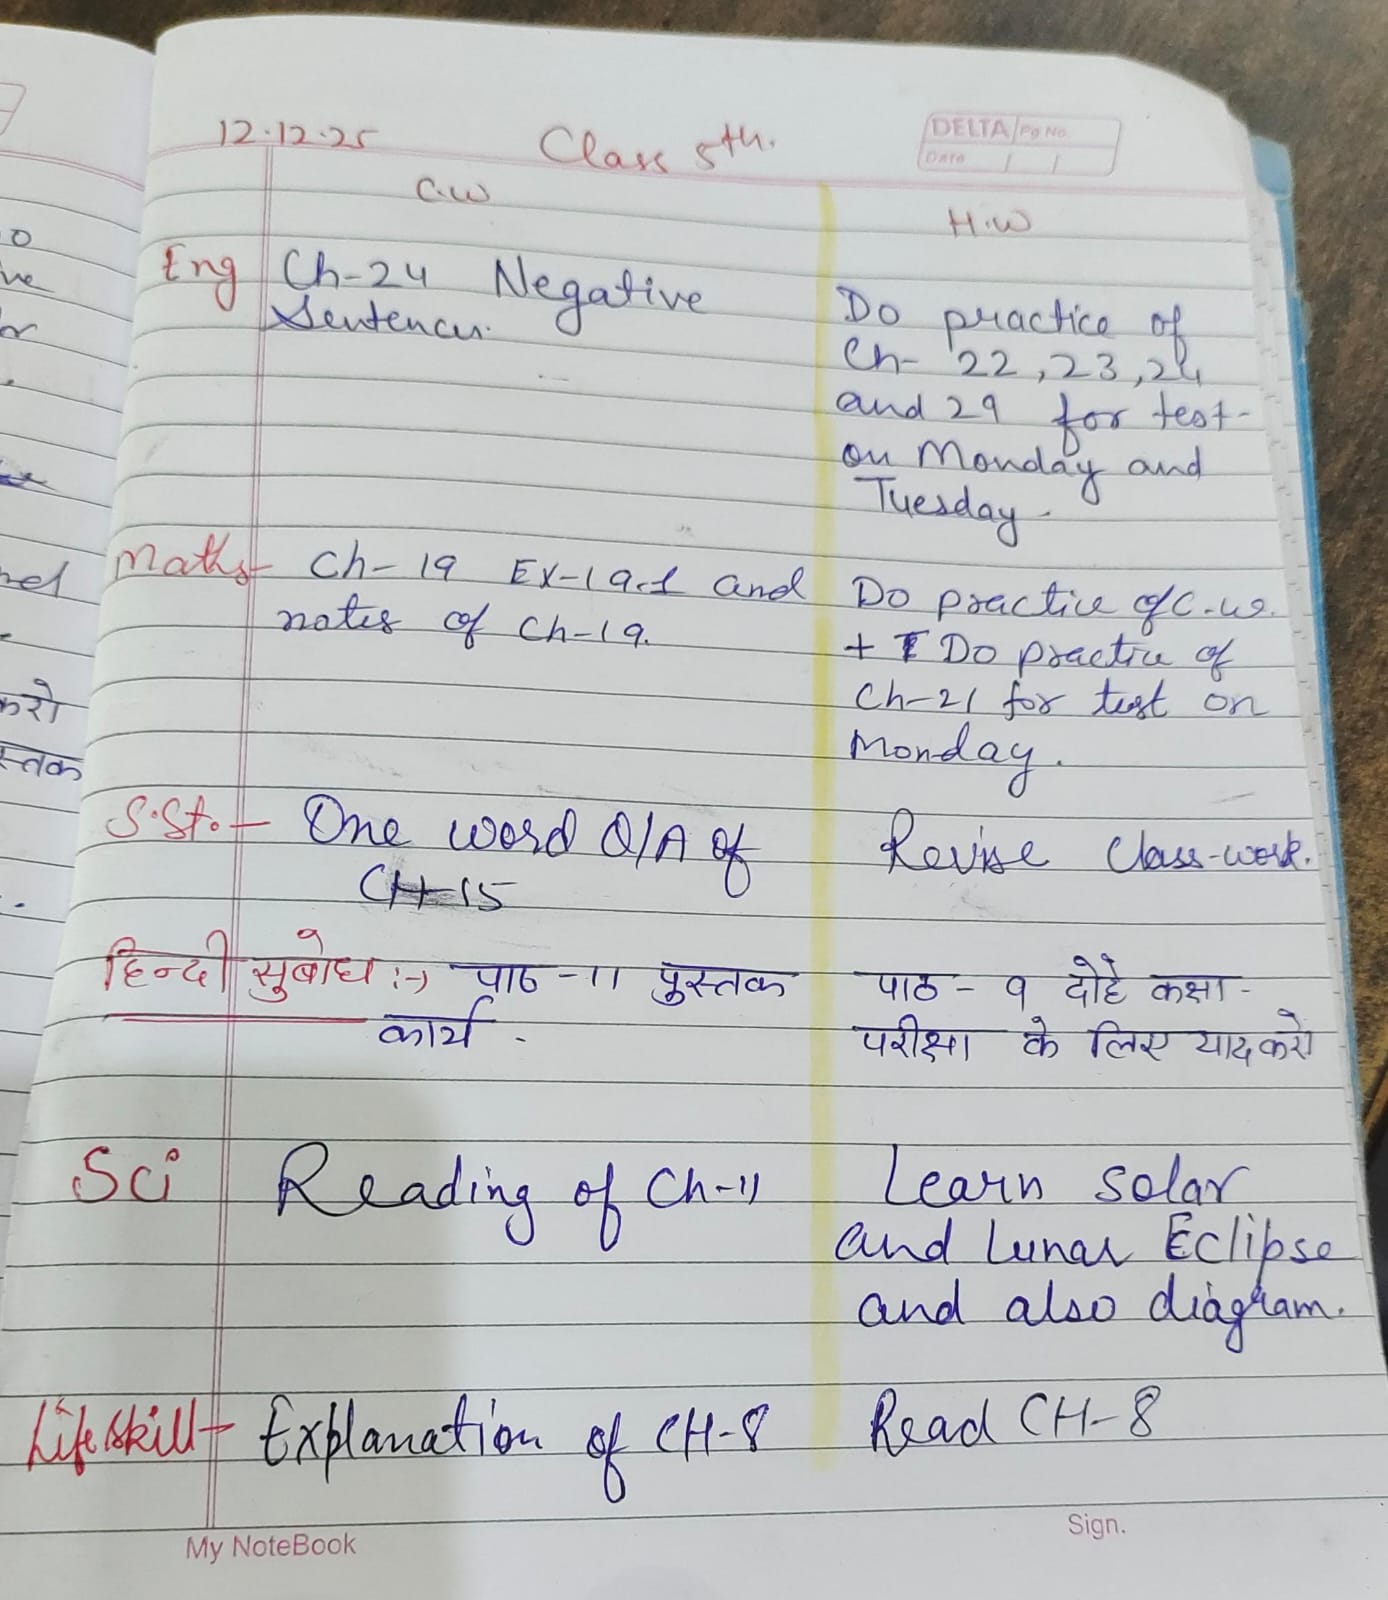 12.12.25 Class 5th.
DELTA Pg No.
Date / /
C.W
H.W
Eng Ch-24 Negative
Sentences.
Do practice of
Ch- 22, 23, 24
and 29 for test
on Monday and
Tuesday.
Maths- Ch-19 EX-19.1 and
notes of Ch-19.
Do practice of C.W.
+ Do practice of
Ch-21 for test on
Monday.
S.St. - One word Q/A of
CH-15
Revise Class-work.
हिन्दी सुबोध :-) पाठ -11 पुस्तक
कार्य -
पाठ - 9 दोहे कक्षा -
परीक्षा के लिए याद करो
Sci Reading of Ch-11
Learn solar
and Lunar Eclipse
and also diagram.
Life skill- Explanation of CH-8
Read CH-8
My NoteBook
Sign.
ve
or
करो
स्तक